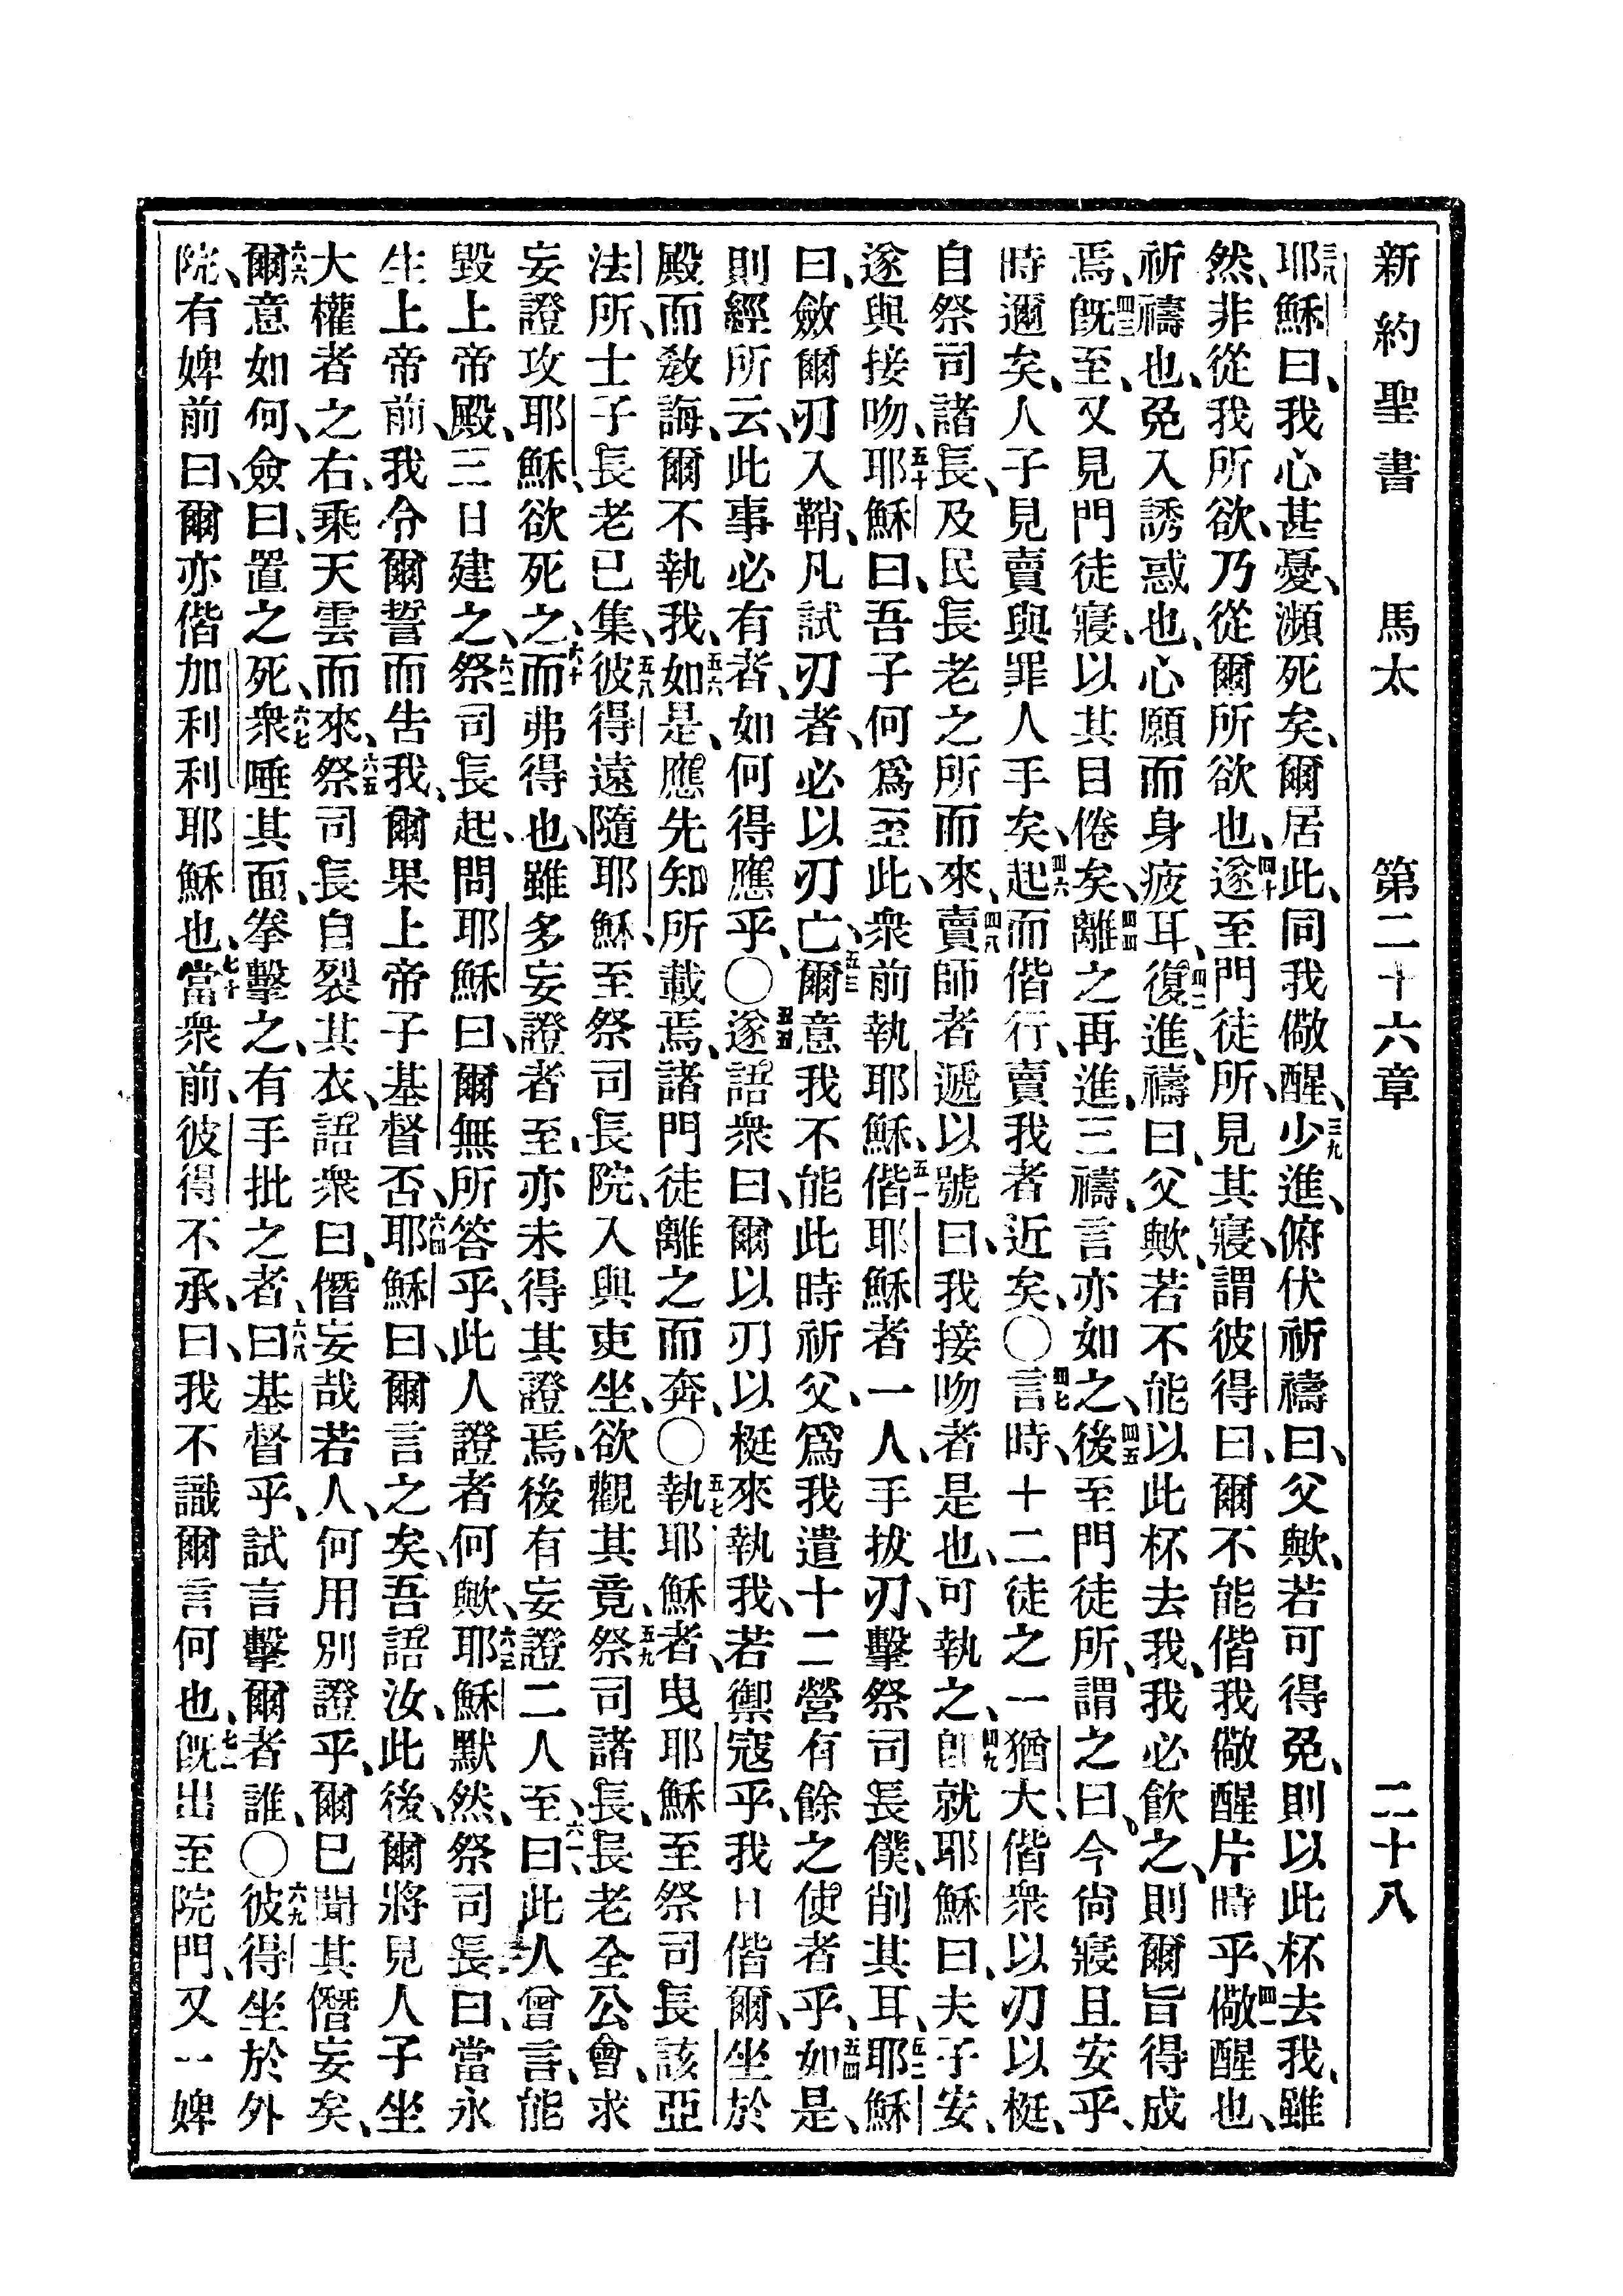 新約聖書 馬太 第二十六章 二十八
三八耶穌曰、我心甚憂、瀕死矣、爾居此、同我儆醒、三九少進、俯伏祈禱曰、父歟、若可得免、則以此杯去我、雖
然、非從我所欲、乃從爾所欲也、四十遂至門徒所、見其寢、謂彼得曰、爾不能偕我儆醒片時乎、四一儆醒也、
祈禱也、免入誘惑也、心願而身疲耳、四二復進、禱曰、父歟、若不能以此杯去我、我必飲之、則爾旨得成
焉、四三旣至、又見門徒寢、以其目倦矣、四四離之再進、三禱、言亦如之、四五後至門徒所、謂之曰、今尙寢且安乎、
時邇矣、人子見賣與罪人手矣、四六起而偕行、賣我者近矣、〇四七言時、十二徒之一猶大、偕衆以刃以梃、
自祭司諸長、及民長老之所而來、四八賣師者遞以號曰、我接吻者是也、可執之、四九卽就耶穌曰、夫子安、
遂與接吻、五十耶穌曰、吾子何爲至此、衆前執耶穌、五一偕耶穌者一人、手拔刃、擊祭司長僕、削其耳、五二耶穌
曰、斂爾刃入鞘、凡試刃者、必以刃亡、五三爾意我不能此時祈父、爲我遣十二營有餘之使者乎、五四如是、
則經所云、此事必有者、如何得應乎、〇五五遂語衆曰、爾以刃以梃來執我、若禦寇乎、我日偕爾、坐於
殿而敎誨、爾不執我、五六如是、應先知所載焉、諸門徒離之而奔、〇五七執耶穌者、曳耶穌至祭司長該亞
法所、士子長老已集、五八彼得遠隨耶穌、至祭司長院、入與吏坐、欲觀其竟、五九祭司諸長、長老全公會、求
妄證攻耶穌、欲死之、六十而弗得也、雖多妄證者至、亦未得其證焉、後有妄證二人至、六一曰、此人曾言、能
毀上帝殿、三日建之、六二祭司長起、問耶穌曰、爾無所答乎、此人證者何歟、六三耶穌默然、祭司長曰、當永
生上帝前、我令爾誓而吿我、爾果上帝子基督否、六四耶穌曰、爾言之矣、吾語汝、此後、爾將見人子坐
大權者之右、乘天雲而來、六五祭司長自裂其衣、語衆曰、僭妄哉若人、何用別證乎、爾已聞其僭妄矣、
六六爾意如何、僉曰、置之死、六七衆唾其面、拳擊之、有手批之者、六八曰、基督乎、試言擊爾者誰、〇六九彼得坐於外
院、有婢前曰、爾亦偕加利利耶穌也、七十當衆前、彼得不承、曰、我不識爾言何也、七一旣出至院門、又一婢